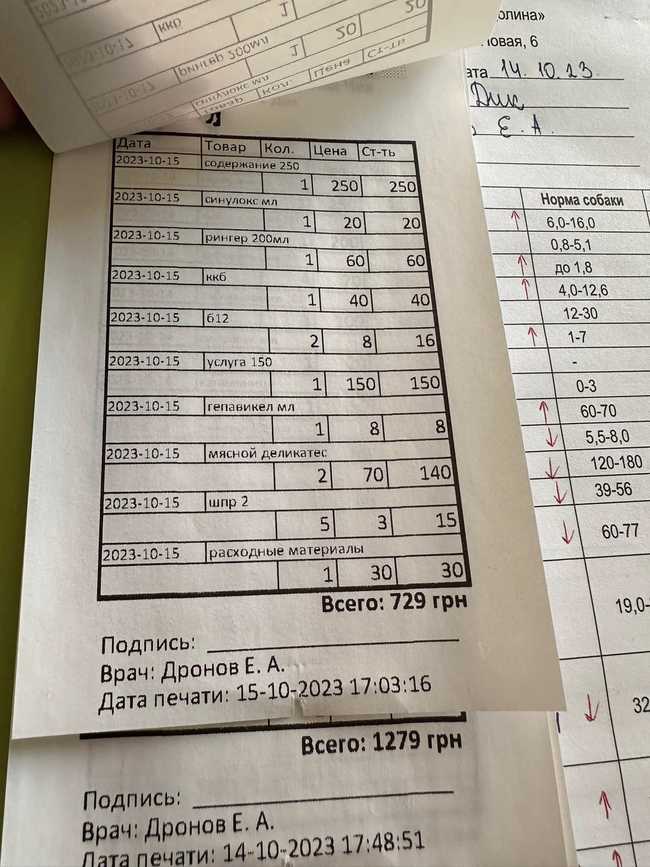 2023-10-17
ккб
1
20
2023-10-17
рингер 200мл
1
20
синулокс мл
Товар Кол. Цена Ст-ть
Дата Товар Кол. Цена Ст-ть
2023-10-15 содержание 250
1 250 250
2023-10-15 синулокс мл
1 20 20
2023-10-15 рингер 200мл
1 60 60
2023-10-15 ккб
1 40 40
2023-10-15 б12
2 8 16
2023-10-15 услуга 150
1 150 150
2023-10-15 гепавикел мл
1 8 8
2023-10-15 мясной деликатес
2 70 140
2023-10-15 шпр 2
5 3 15
2023-10-15 расходные материалы
1 30 30
Всего: 729 грн
Подпись:
Врач: Дронов Е. А.
Дата печати: 15-10-2023 17:03:16
Всего: 1279 грн
Подпись:
Врач: Дронов Е. А.
Дата печати: 14-10-2023 17:48:51
олина»
овая, 6
ата 14.10.23.
Дик
Е. А.
Норма собаки
↑ 6,0-16,0
0,8-5,1
↑ до 1,8
↑ 4,0-12,6
12-30
↑ 1-7
-
0-3
↑ 60-70
↓ 5,5-8,0
↓ 120-180
↓ 39-56
↓ 60-77
19,0-
↓ 32
↑
↑